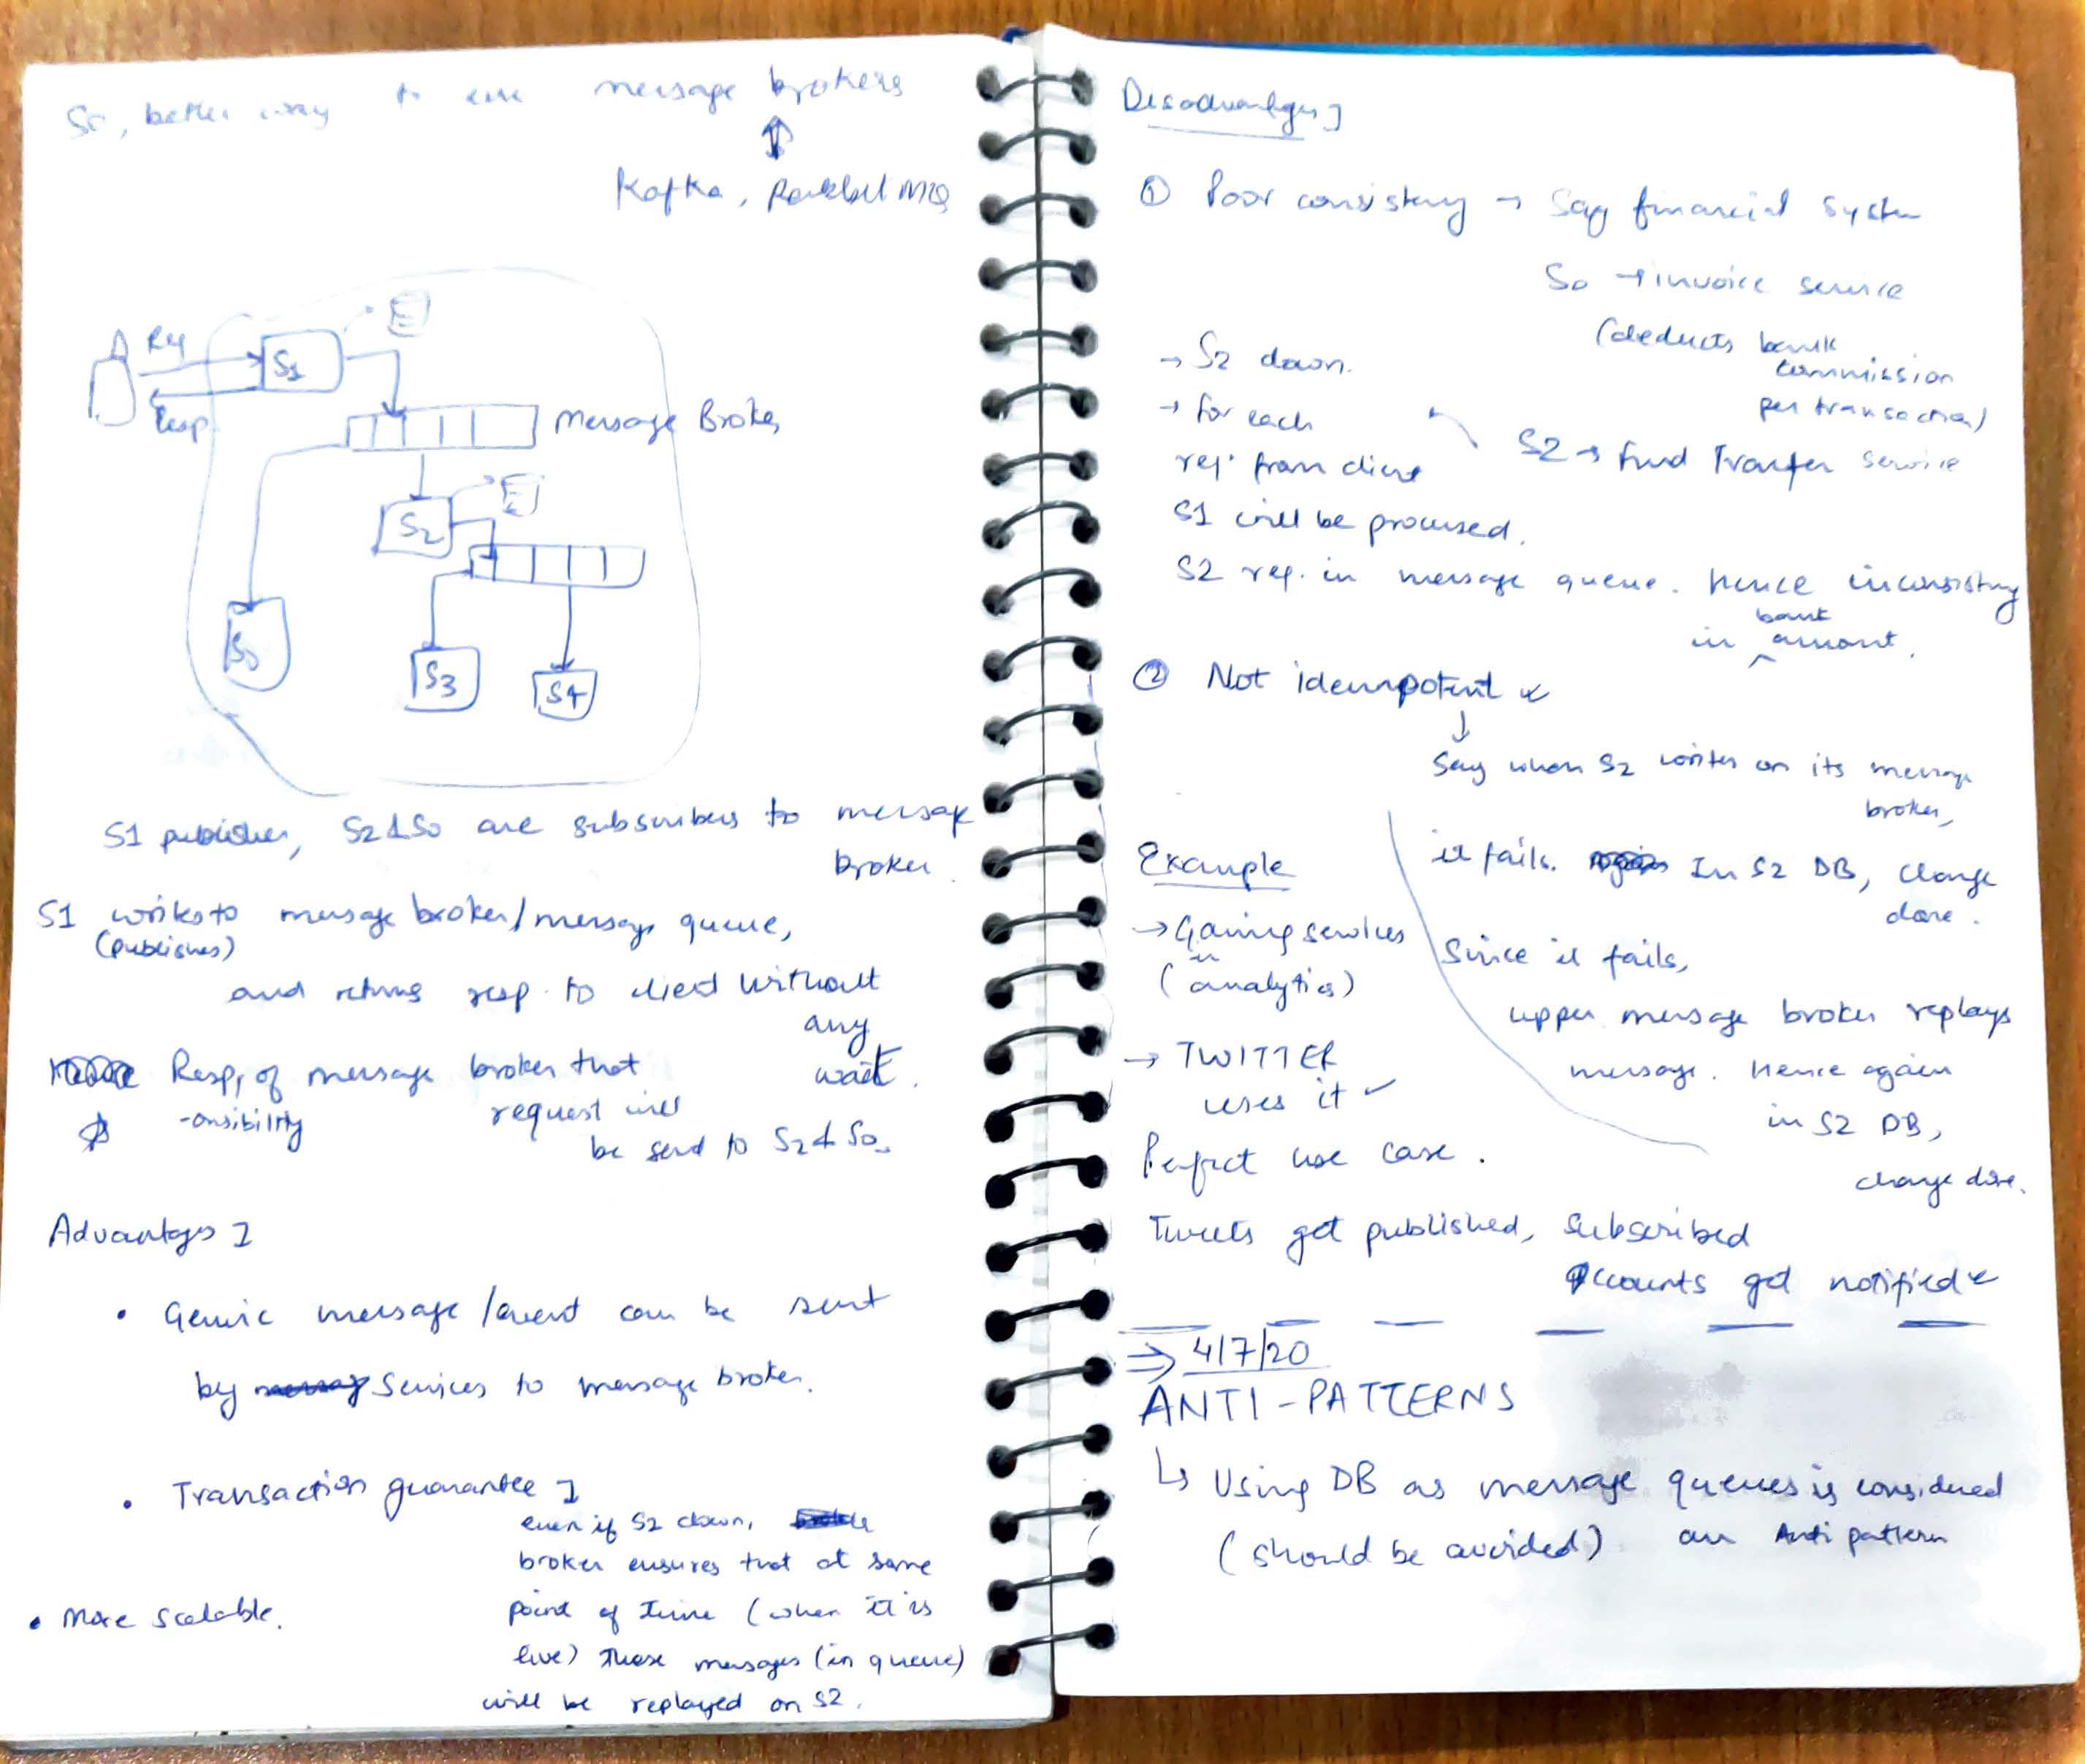 So, better way to use message brokers
Kafka, RabbitMQ
Req
S1
Resp
Message Broker
S2
S0
S3
S4
S1 publisher, S2 & S0 are subscribers to message
broker.
S1 writes to message broker/message queue,
(publishes)
and returns resp. to client without
any
wait.
Resp. of message broker that
-onsibility
request will
be send to S2 & S0.
Advantages ]
• Generic message/event can be sent
by services to message broker.
• Transaction guarantee ]
even if S2 down,
broker ensures that at some
point of time (when it is
live) those messages (in queue)
will be replayed on S2.
• More scalable.
Disadvantages ]
① Poor consistency → Say financial system
S0 → invoice service
(deducts bank
commission
per transaction)
S2 → Fund Transfer service
→ S2 down.
→ for each
req. from client
S1 will be processed.
S2 req. in message queue. Hence inconsistency
bank
in ^ amount.
② Not idempotent
↓
Say when S2 writes on its message
broker,
it fails. In S2 DB, change
done.
Since it fails,
upper message broker replays
message. Hence again
in S2 DB,
change done.
Example
→ Gaming services
(analytics)
→ TWITTER
uses it ✓
Perfect use case.
Tweets get published, subscribed
accounts get notified
⇒ 4/7/20
ANTI-PATTERNS
↳ Using DB as message queues is considered
(should be avoided) an Anti pattern